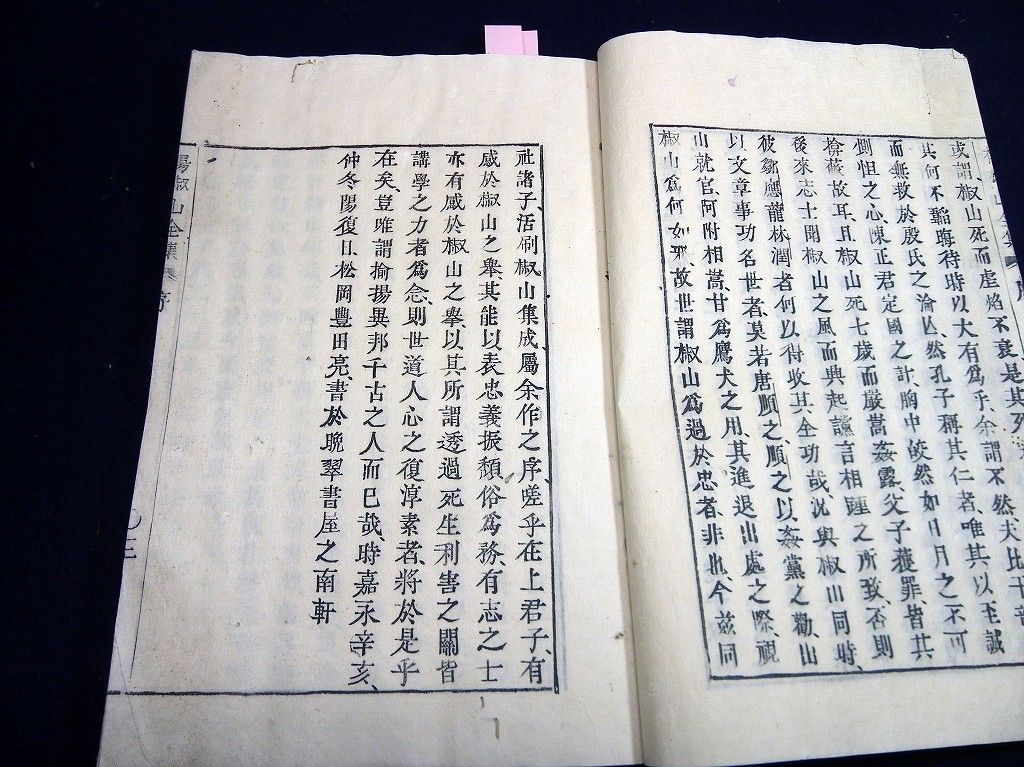 或謂椒山死而虐焰不衰是其死
其何不韜晦待時以大有爲乎余謂不然夫比干
而無救於殷氏之淪亾然孔子稱其仁者唯其以至誠
惻怛之心陳正君定國之計胸中皎然如日月之不可
揜蔽故耳且椒山死七歲而嚴嵩姦露父子獲罪皆其
後來志士聞椒山之風而興起讜言相踵之所致否則
彼鄒應龍林潤者何以得收其全功哉況與椒山同時
以文章事功名世者莫若唐順之順之以姦黨之勸出
山就官阿附相嵩甘爲鷹犬之用其進退出處之際視
椒山爲何如邪故世謂椒山爲過於忠者非也今玆同
社諸子活刷椒山集成屬余作之序嗟乎在上君子有
感於椒山之舉其能以表忠義振頽俗爲務有志之士
亦有感於椒山之擧以其所謂透過死生利害之關皆
講學之力者爲念則世道人心之復淳素者將於是乎
在矣豈唯謂揄揚異邦千古之人而已哉時嘉永辛亥
仲冬陽復日松岡豐田亮書於晩翠書屋之南軒
楊椒山全集 序